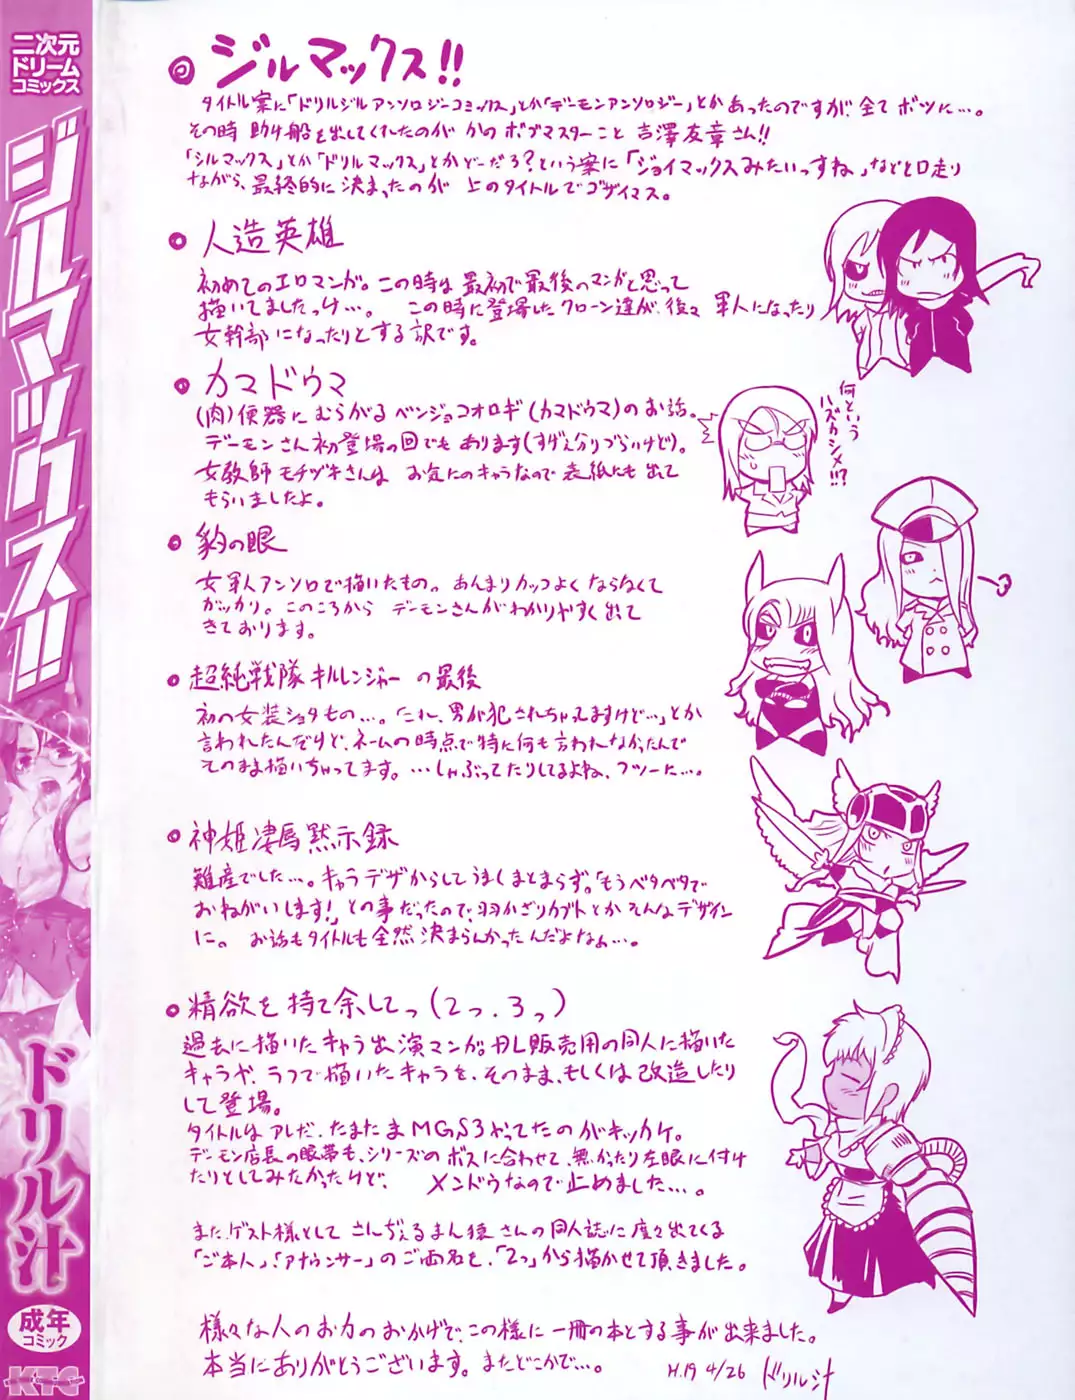 二次元
ドリーム
コミックス
ジルマックス!!
ドリル汁
成年
コミック
KTC
ジルマックス!!
タイトル案に「ドリルジルアンソロジーコミックス」とか「デーモンアンソロジー」とかあったのですが、全てボツに…。
その時助け船を出してくれたのがかのボブマスターこと吉澤友章さん!!
「ジルマックス」とか「ドリルマックス」とかどーだろ?という案に「ジョイマックスみたいっすね」などと口走り
ながら、最終的に決まったのが上のタイトルでゴザイマス。
人造英雄
初めてのエロマンガ。この時は最初で最後のマンガと思って
描いてましたっけ…。この時に登場したクローン達が、後々軍人になったり
女幹部になったりとする訳です。
カマドウマ
(肉)便器にむらがるベンジョコオロギ(カマドウマ)のお話。
デーモンさん初登場の回でもあります(すげえ分りづらいけど)。
女教師モチヅキさんはお気にのキャラなので表紙にも出て
もらいましたよ。
何という
ハズカシメ!!?
豹の眼
女軍人アンソロで描いたもの。あんまりカッコよくならなくて
ガッカリ。このころからデーモンさんがわかりやすく出て
きております。
超純戦隊キルレンジャーの最後
初の女装ショタもの…。「これ、男が犯されちゃってますけど…」とか
言われたんだけど、ネームの時点で特に何も言われなかったんで
そのまま描いちゃってます。…しゃぶってたりしてるよね、フツーに…。
神姫凄辱黙示録
難産でした…。キャラデザからしてうまくまとまらず。「もうベタベタで
おねがいします!」との事だったので、羽かざりカブトとかそんなデザイン
に。お話もタイトルも全然決まらんかったんだよなぁ…。
精欲を持て余してっ(2っ、3っ)
過去に描いたキャラ出演マンガ。DL販売用の同人に描いた
キャラや、ラフで描いたキャラを、そのまま、もしくは改造したり
して登場。
タイトルはアレだ、たまたまMGS3やってたのがキッカケ。
デーモン店長の眼帯も、シリーズのボスに合わせて、無かったり左眼に付け
たりとしてみたかったけど、メンドウなので止めました…。
また、ゲスト様としてこんぢぇるまん猿さんの同人誌に度々出てくる
「ご本人」、「アナウンサー」のご両名を、「2っ」から描かせて頂きました。
様々な人のお力のおかげで、この様に一冊の本とする事が出来ました。
本当にありがとうございます。またどこかで…。
H.19 4/26 ドリル汁